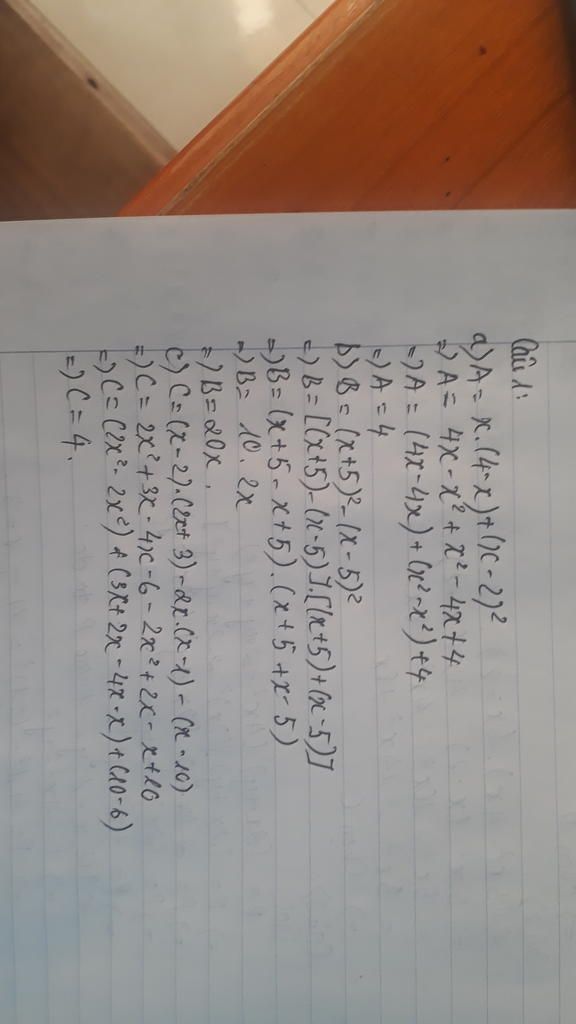 Câu 1:
a) A = x.(4-x)+(x-2)²
=) A = 4x-x²+x²-4x+4
=) A = (4x-4x)+(x²-x²)+4
=) A = 4
b) B = (x+5)²-(x-5)²
=) B = [(x+5)-(x-5)].[(x+5)+(x-5)]
=) B = (x+5-x+5).(x+5+x-5)
=) B = 10.2x
=) B = 20x.
c) C = (x-2).(2x+3)-2x.(x-1)-(x-10)
=) C = 2x²+3x-4x-6-2x²+2x-x+10
=) C = (2x²-2x²)+(3x+2x-4x-x)+(10-6)
=) C = 4.